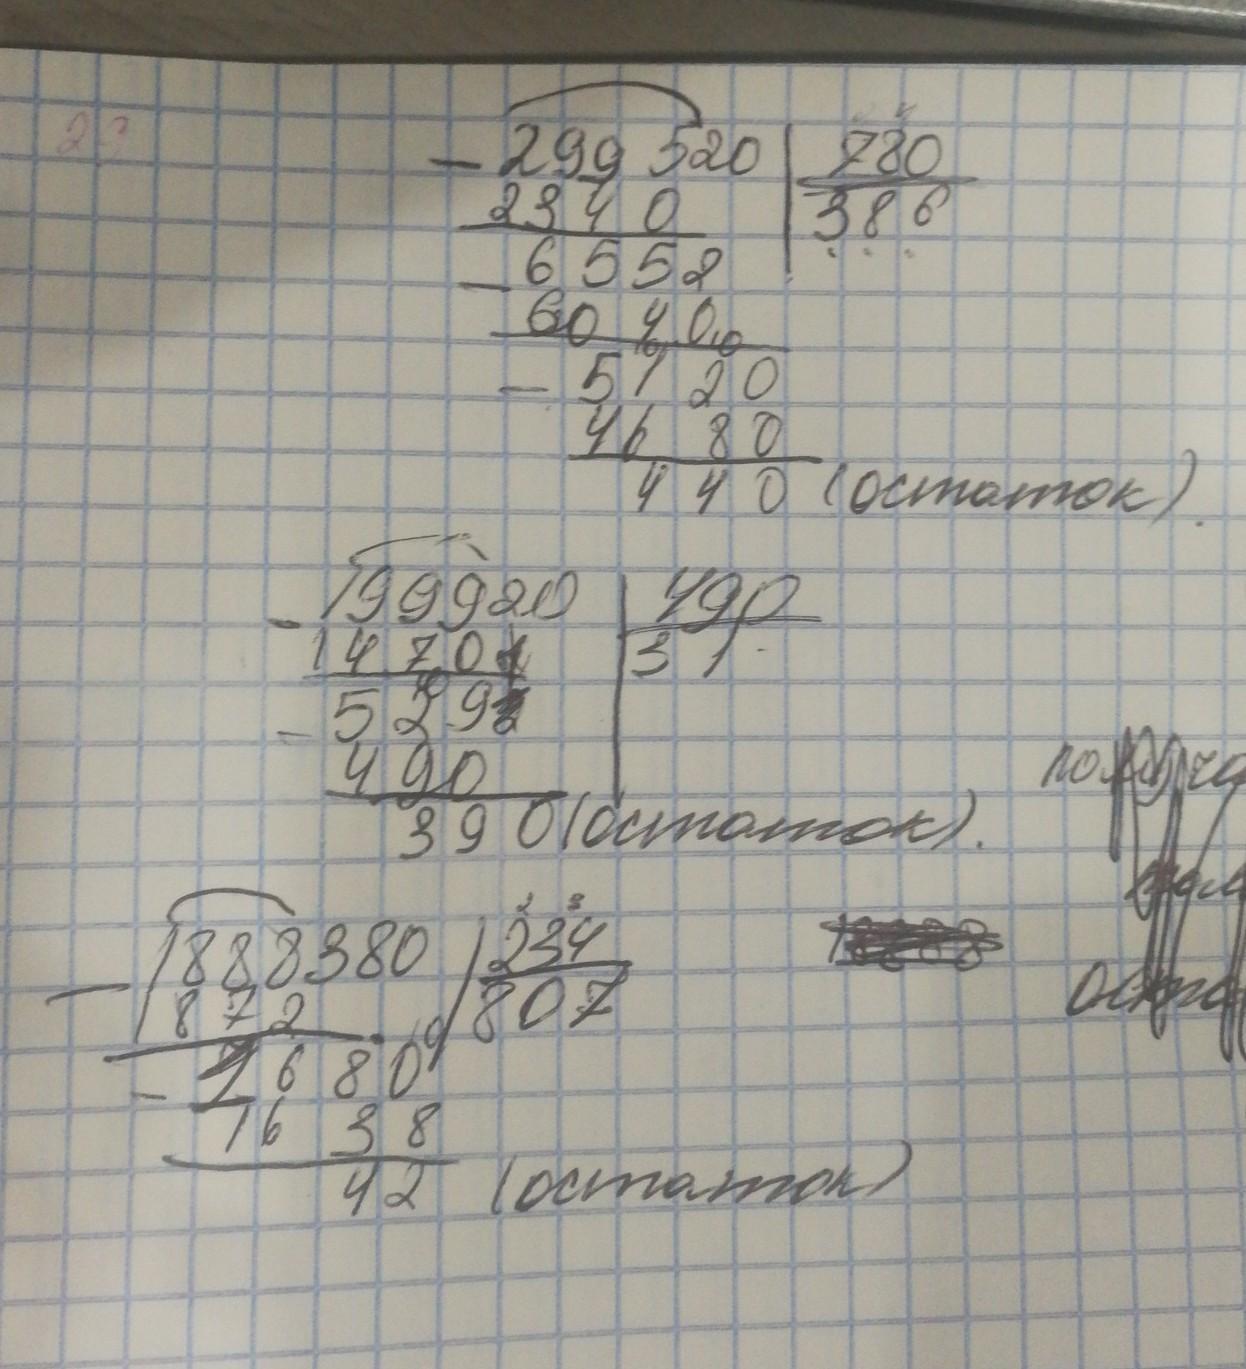 23
- 299520 | 780
2340 | 386
- 6552
6040
- 5120
4680
440 (остаток).
- 199920 | 490
1470 | 31
- 529
490
390 (остаток).
- 1888380 | 234
1872 | 807
- 1680
1638
42 (остаток)